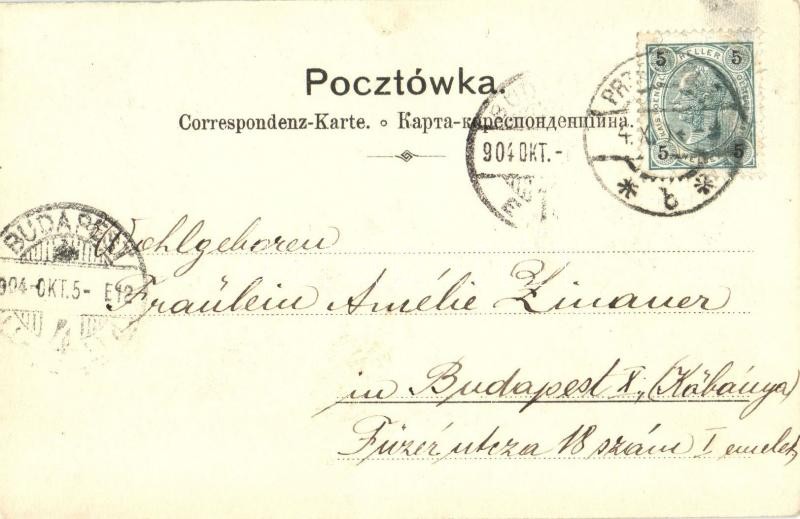 Pocztówka.
Correspondenz-Karte. ∘ Карта-кореспонденційна.
5 HELLER 5
5 5
904 OKT.-
BUDAPEST
904 OKT.5- E12
Wohlgeboren
Fräulein Amélie Zinauer
in Budapest X., (Kőbánya)
Füzér utcza 18 szám I emelet